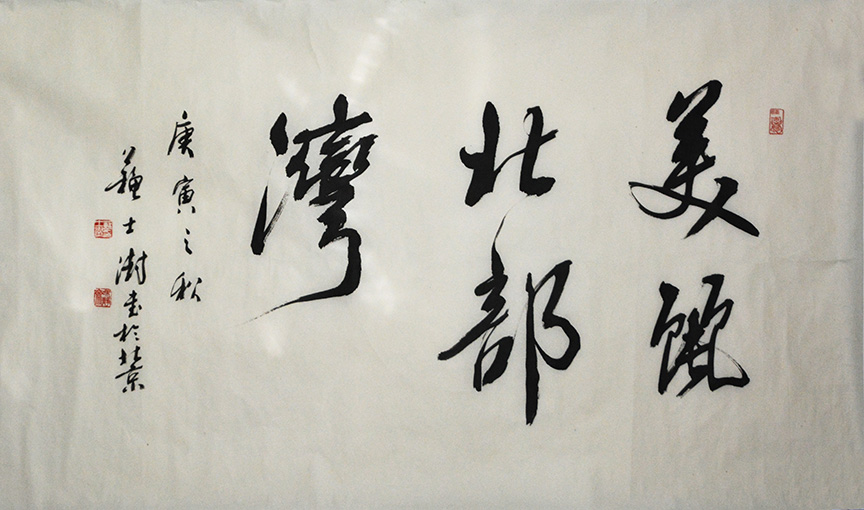 美
北部
灣
庚寅之秋
蘇士澍書於北京